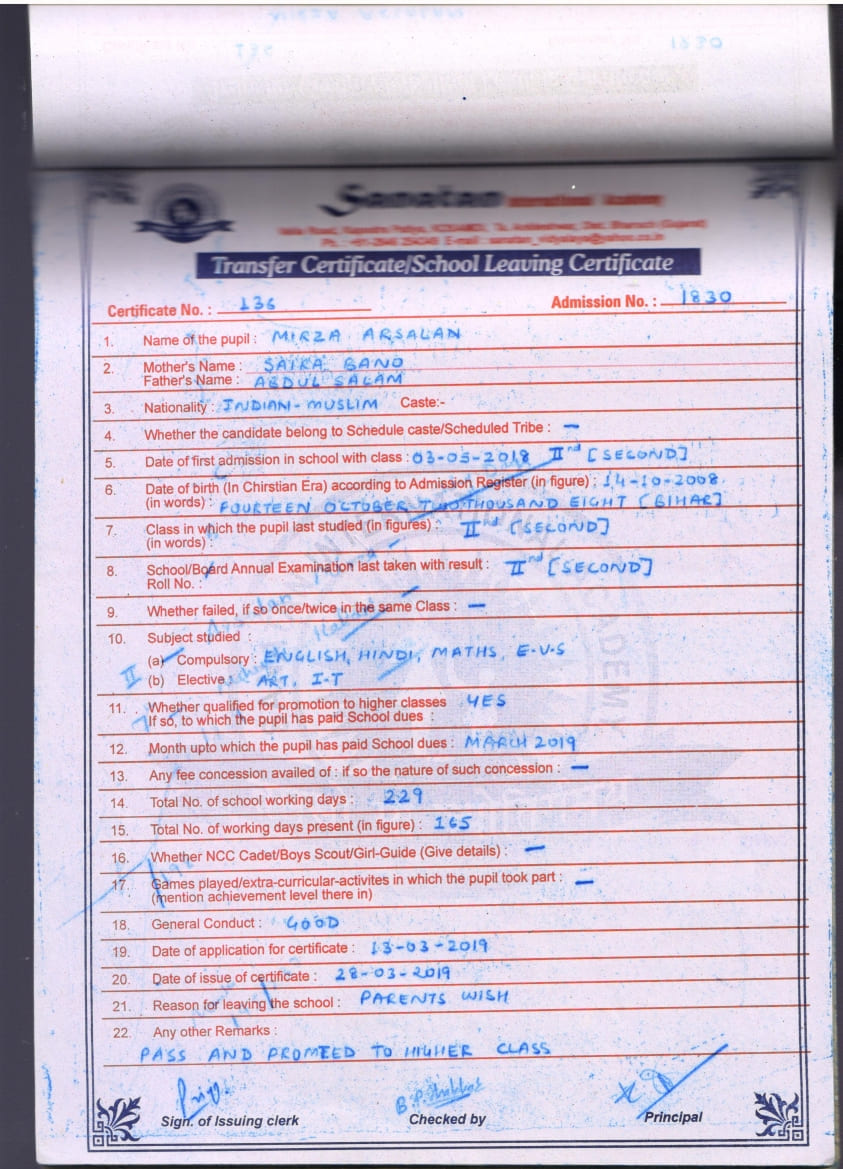 136
1830
Sanatan International Academy
Transfer Certificate/School Leaving Certificate
Certificate No. : 136 Admission No. : 1830
1. Name of the pupil : MIRZA ARSALAN
2. Mother's Name : SAIRA BANO
Father's Name : ABDUL SALAM
3. Nationality : INDIAN-MUSLIM Caste:-
4. Whether the candidate belong to Schedule caste/Scheduled Tribe : —
5. Date of first admission in school with class : 03-05-2018 IInd [SECOND]
6. Date of birth (In Chirstian Era) according to Admission Register (in figure) : 14-10-2008.
(in words) : FOURTEEN OCTOBER TWO THOUSAND EIGHT [BIHAR]
7. Class in which the pupil last studied (in figures) : IInd [SECOND]
(in words)
8. School/Board Annual Examination last taken with result : IInd [SECOND]
Roll No. :
9. Whether failed, if so once/twice in the same Class : —
10. Subject studied :
(a) Compulsory : ENGLISH, HINDI, MATHS, E.V.S
(b) Elective : ART, I.T
11. Whether qualified for promotion to higher classes YES
If so, to which the pupil has paid School dues :
12. Month upto which the pupil has paid School dues : MARCH 2019
13. Any fee concession availed of : if so the nature of such concession : —
14. Total No. of school working days : 229
15. Total No. of working days present (in figure) : 165
16. Whether NCC Cadet/Boys Scout/Girl-Guide (Give details) : —
17. Games played/extra-curricular-activites in which the pupil took part : —
(mention achievement level there in)
18. General Conduct : GOOD
19. Date of application for certificate : 13-03-2019
20. Date of issue of certificate : 28-03-2019
21. Reason for leaving the school : PARENTS WISH
22. Any other Remarks :
PASS AND PROMTED TO HIGHER CLASS
Sign. of Issuing clerk Checked by Principal